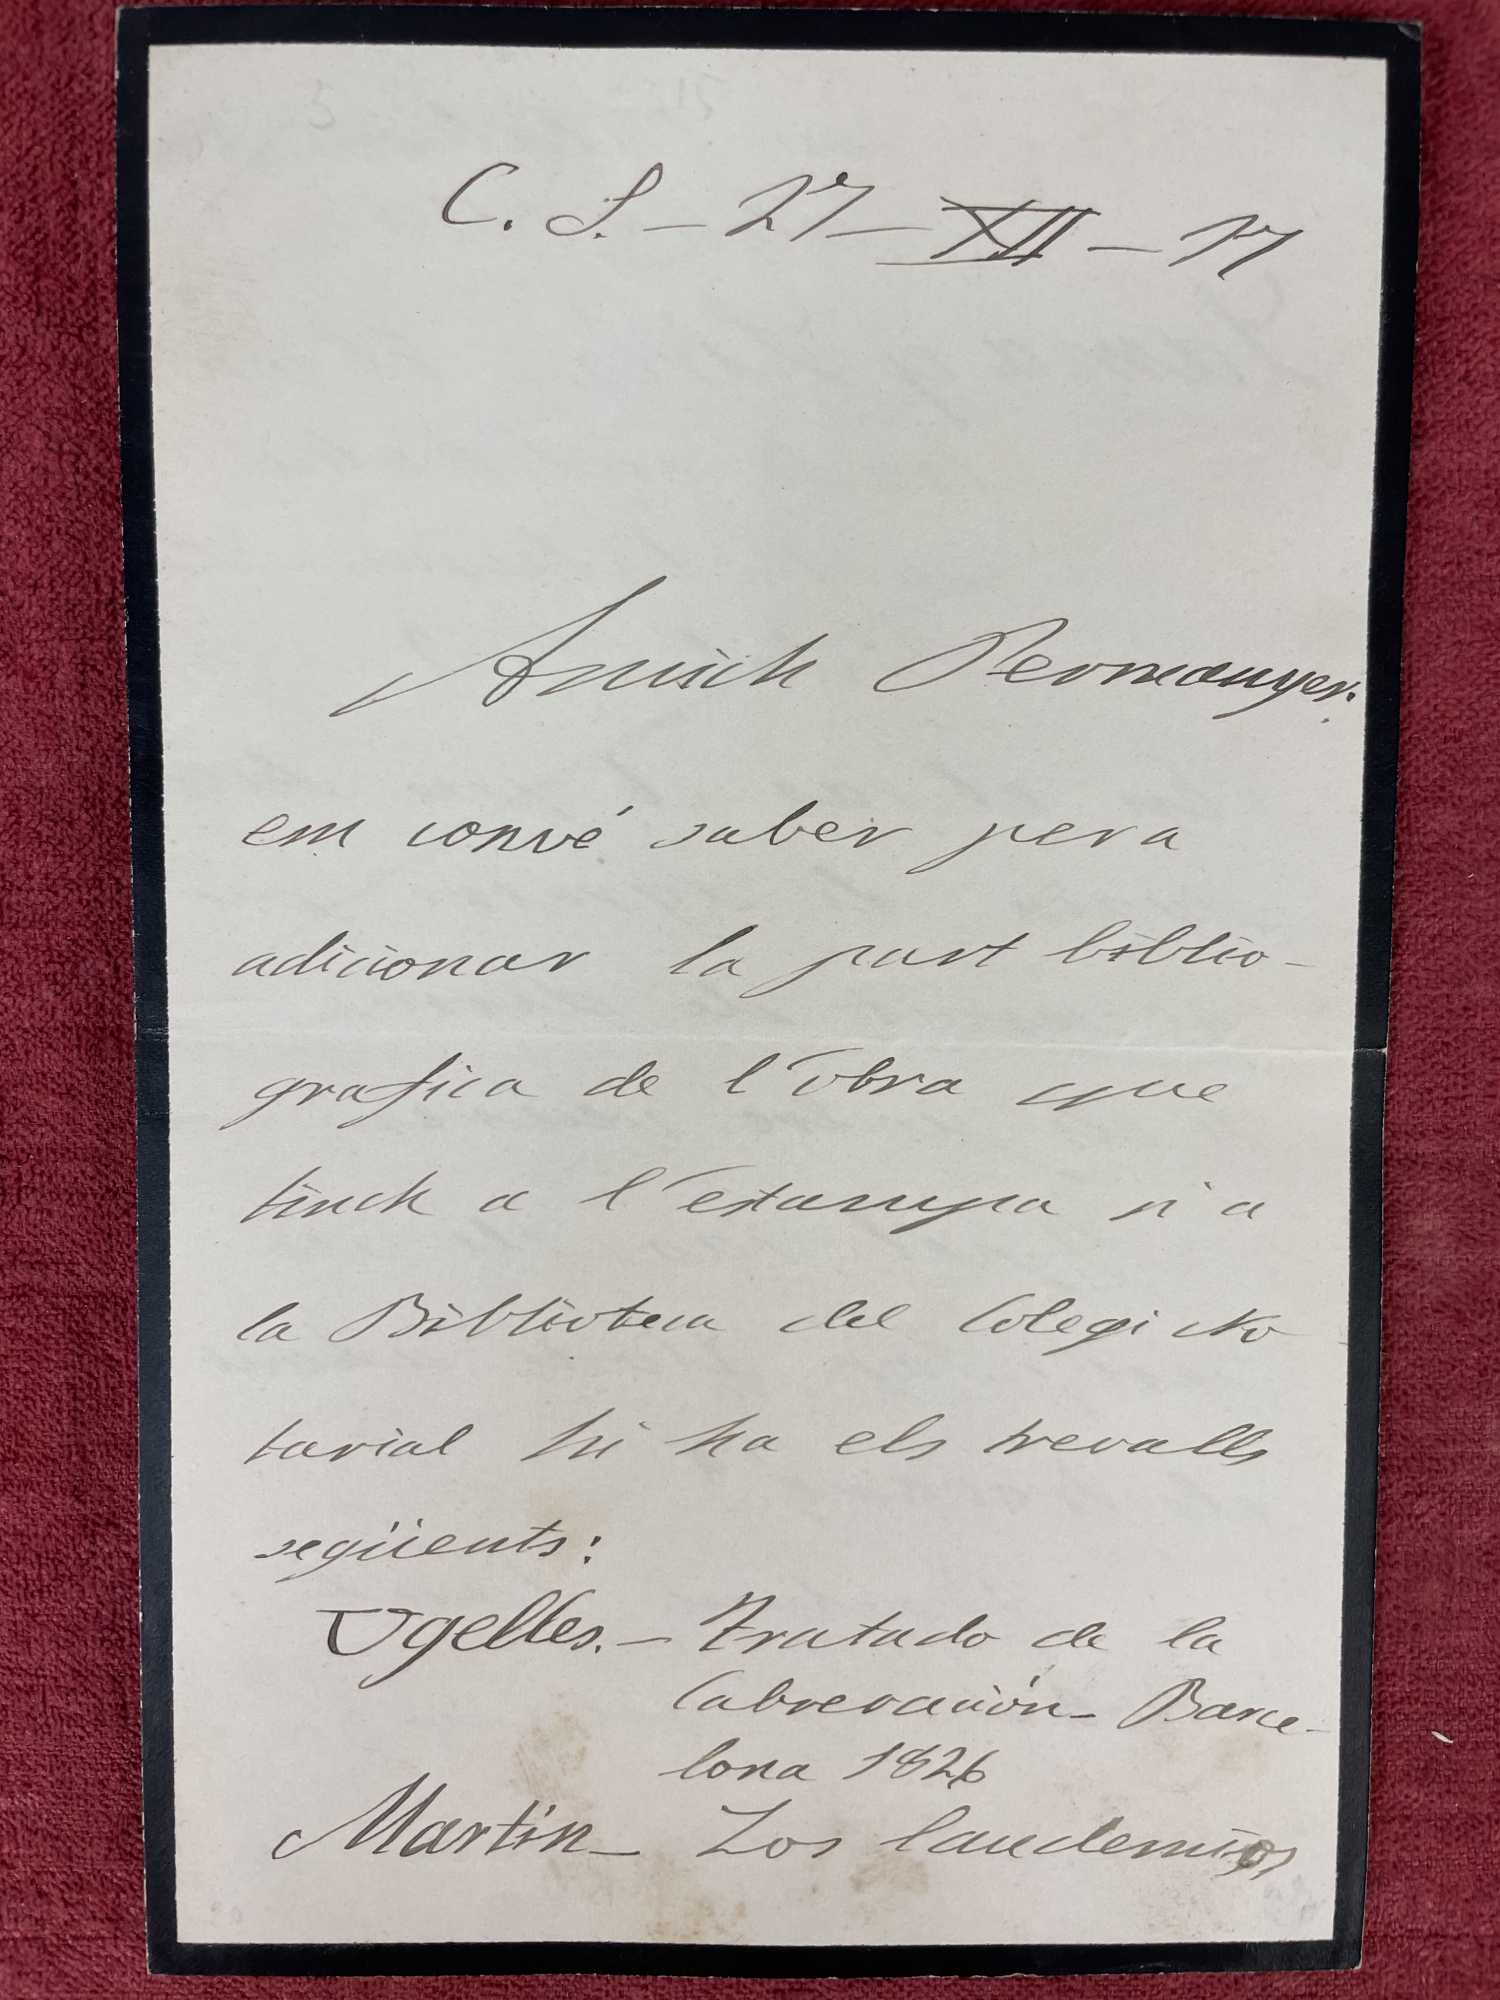 C. S. - 27 - XII - 17
Amich Permanyer:
em convé saber pera
adicionar la part biblio-
grafica de l'obra que
tinch a l'estampa si a
la Biblioteca del Colegi No-
tarial hi ha els trevalls
següents:
Ugelles. - Tratado de la
Cabrevación - Barce-
lona 1826
Martin - Los laudemios,